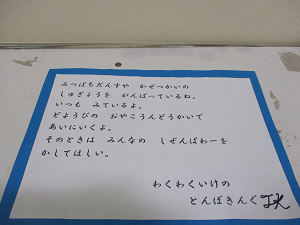 みつばちだんすや かぜ〜かいの
しゅぎょうを がんばっているね。
いつも みているよ。
どようびの おやこうんどうかいで
あいにいくよ。
そのときは みんなの しぜんぱわーを
かしてほしい。
わくわくいけの
とんぼきんぐ TK